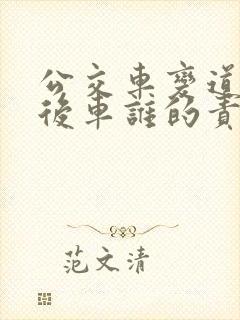 公交車變道
後車誰的責
范文清